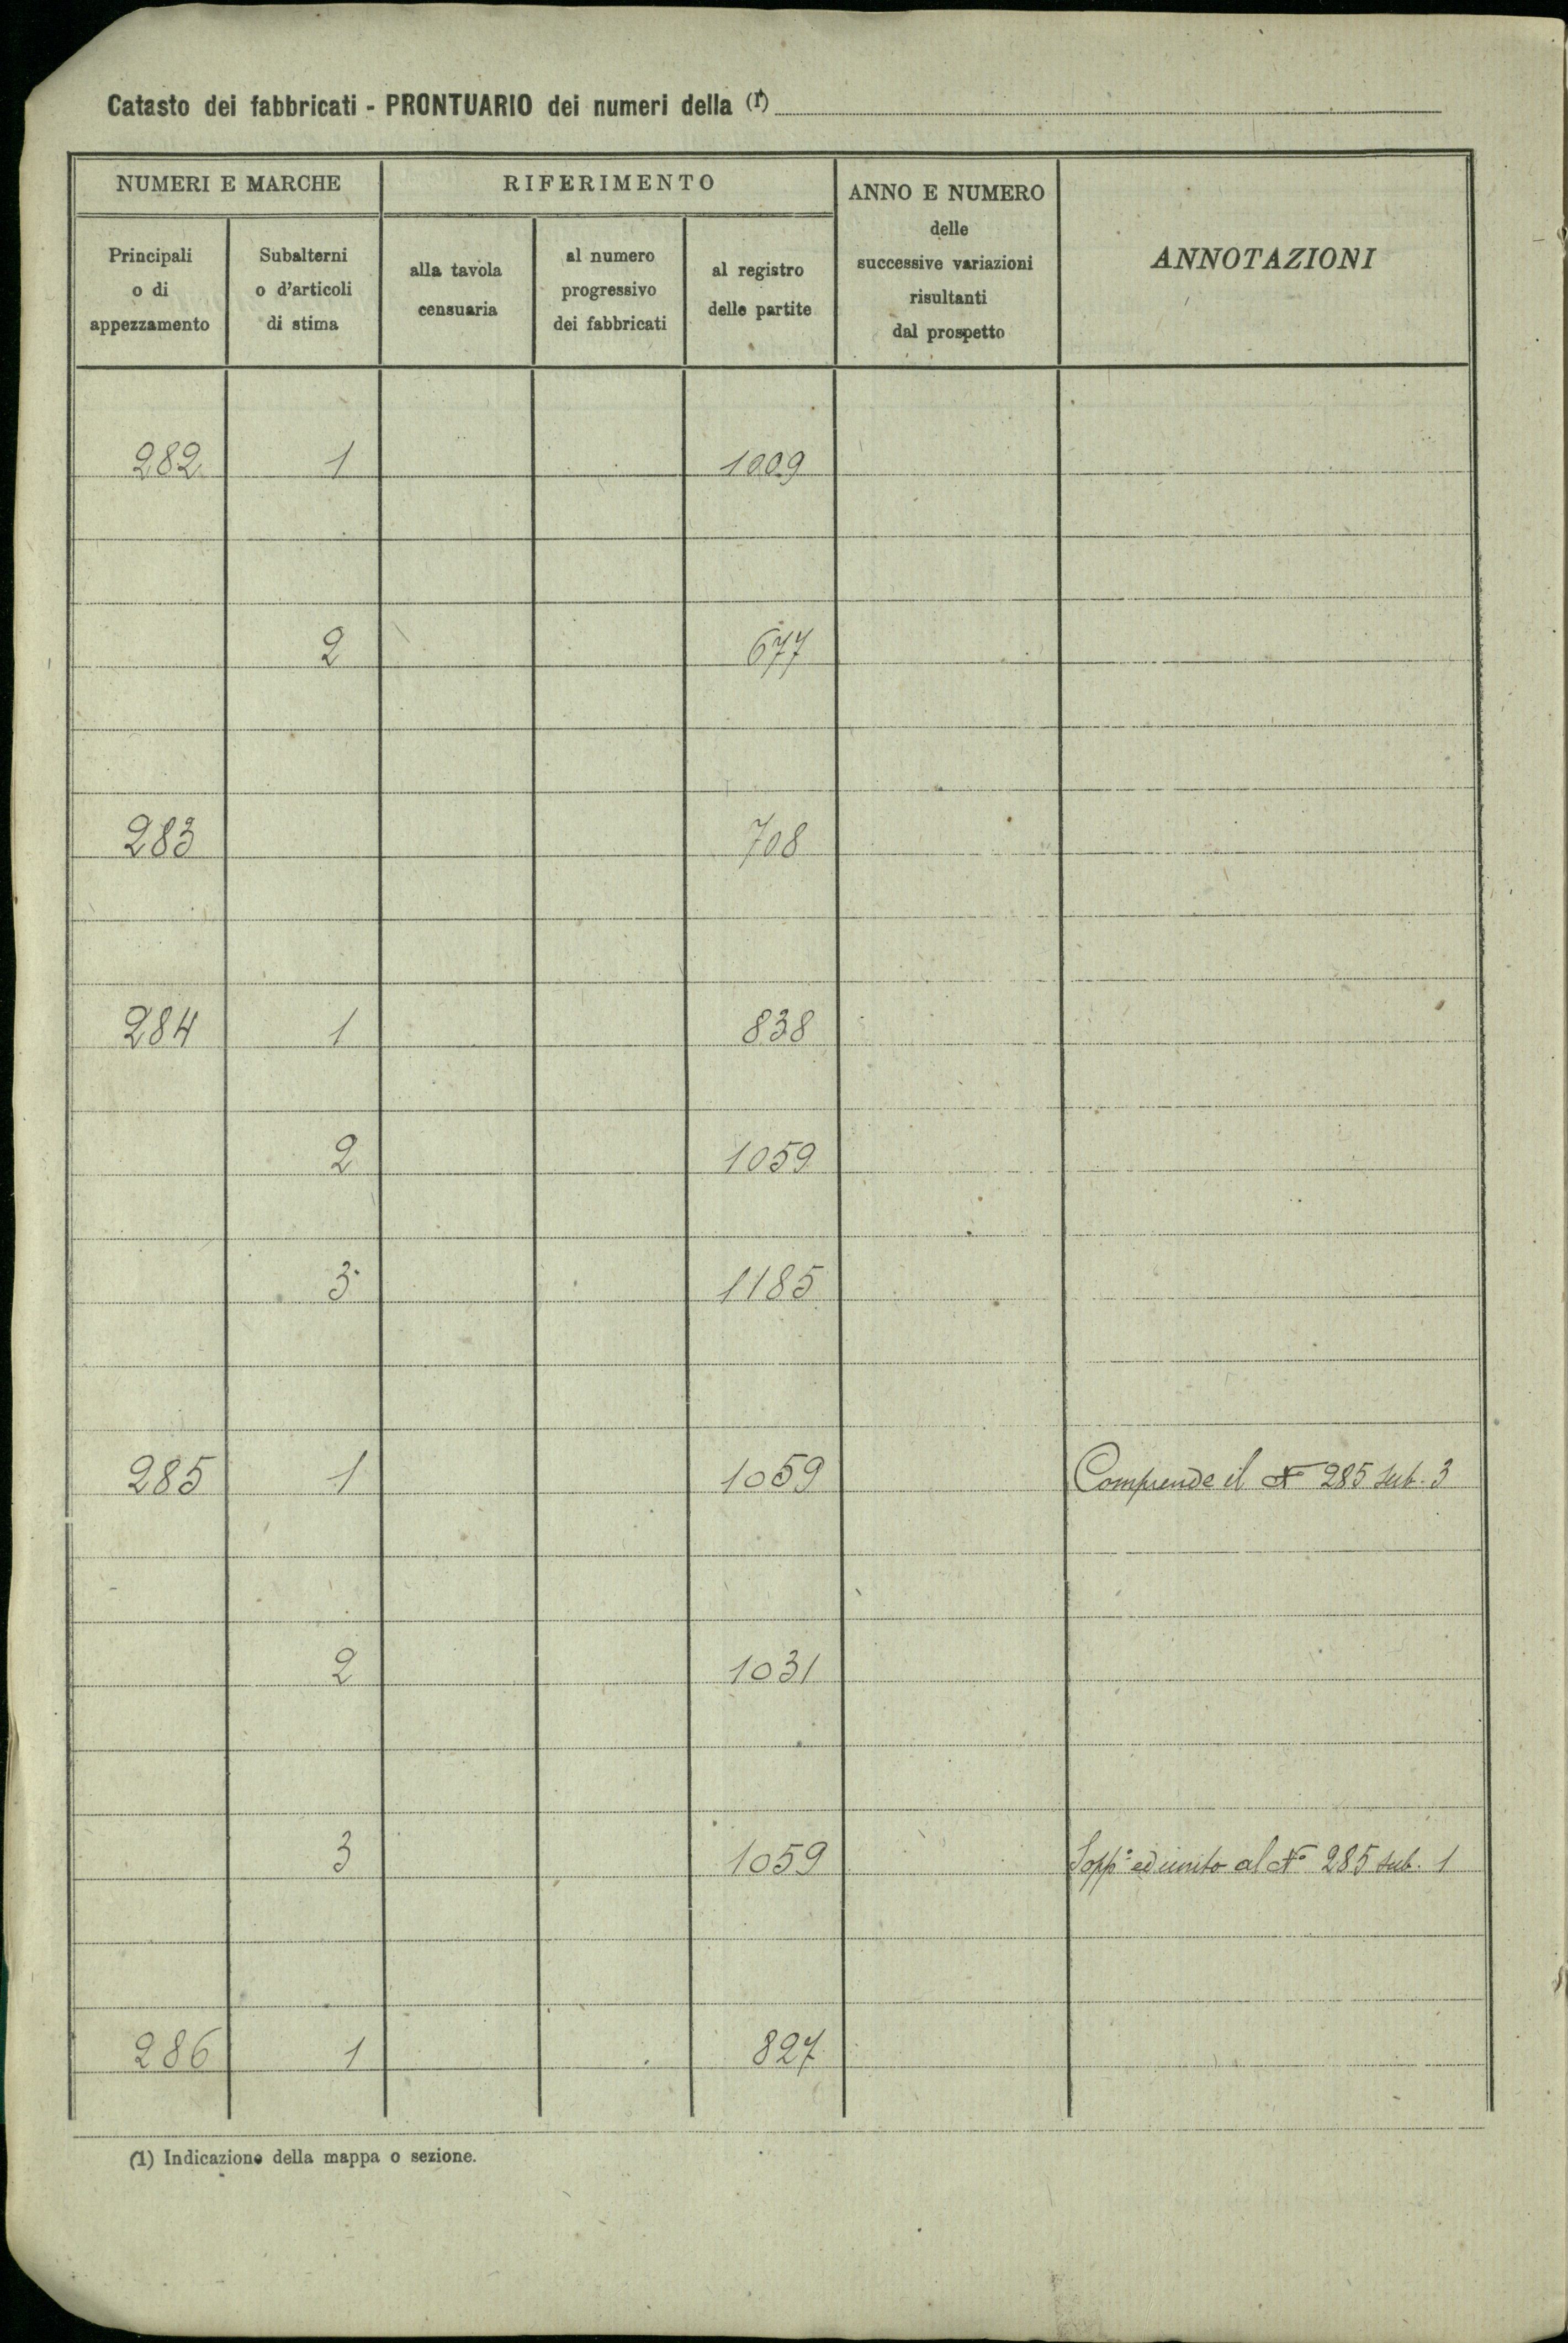 Catasto dei fabbricati - PRONTUARIO dei numeri della (1)
NUMERI E MARCHE
RIFERIMENTO
ANNO E NUMERO
delle
successive variazioni
risultanti
dal prospetto
ANNOTAZIONI
Principali
o di
appezzamento
Subalterni
o d'articoli
di stima
alla tavola
censuaria
al numero
progressivo
dei fabbricati
al registro
delle partite
282 1 1009
2 677
283 708
284 1 838
2 1059
3 1185
285 1 1059 Comprende il N° 285 sub. 3
2 1031
3 1059 Sopp° ed unito al N° 285 sub. 1
286 1 827
(1) Indicazione della mappa o sezione.